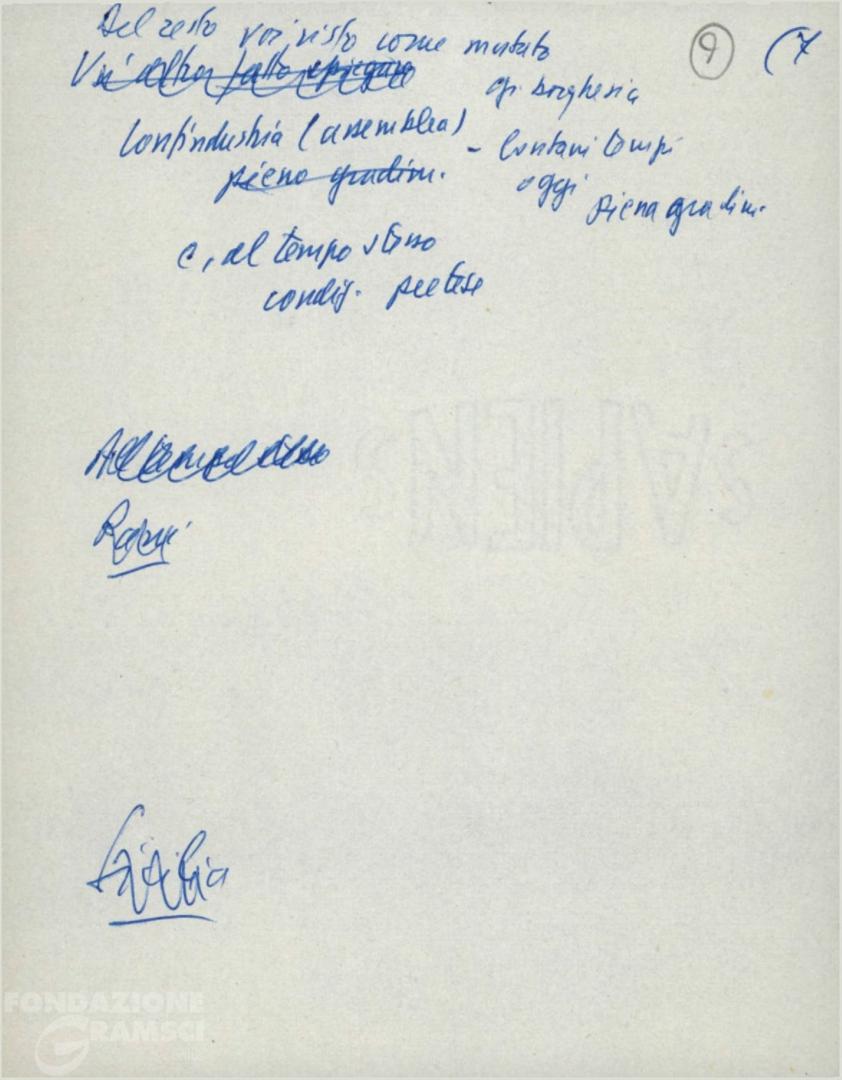 Del resto voi visto come mutato
9
(7
Un altro fatto spiegare
gr. borghesia
Confindustria (assemblea)
- lontani tempi
pieno gradim.
oggi
piena gradim.
e, al tempo stesso
condiz. pretese
Sicilia
FONDAZIONE
GRAMSCI